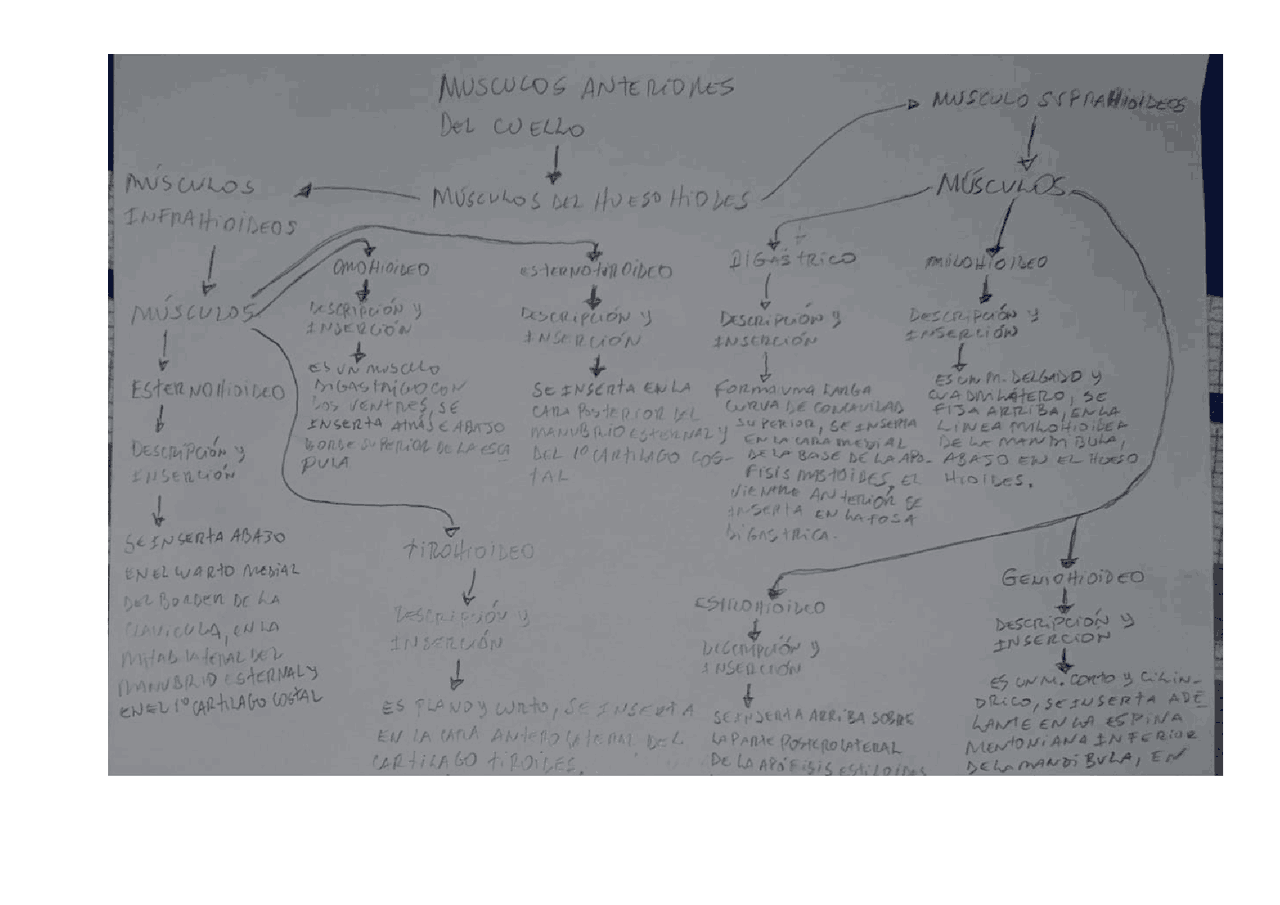 MUSCULOS ANTERIORES
DEL CUELLO
MÚSCULOS DEL HUESO HIODES
MÚSCULOS
INFRAHIOÍDEOS
MÚSCULOS
ESTERNOHIOÍDEO
DESCRIPCIÓN Y
INSERCIÓN
SE INSERTA ABAJO
EN EL CUARTO MEDIAL
DEL BORDER DE LA
CLAVICULA, EN LA
MITAB LATERAL DEL
MANUBRIO ESTERNAL Y
EN EL 1º CARTILAGO COSTAL
OMOHIOÍDEO
DESCRIPCIÓN Y
INSERCIÓN
ES UN MUSCULO
CON
DOS VENTRES, SE
INSERTA ATRÁS E ABAJO
BORDE SUPERIOR DE LA ESCA
PULA
DESCRIPCIÓN Y
INSERCIÓN
SE INSERTA EN LA
CARA POSTERIOR DEL
MANUBRIO ESTERNAL Y
DEL 1º CARTILAGO COS-
TAL
TIROHIOÍDEO
DESCRIPCIÓN Y
INSERCIÓN
ES PLANO Y CORTO, SE INSERTA
EN LA CARA ANTEROLATERAL DEL
CARTILAGO TIROIDES,
MUSCULO SUPRAHIOIDEOS
MÚSCULOS
DIGÁSTRICO
DESCRIPCIÓN Y
INSERCIÓN
FORMA UMA LARGA
CURVA DE CONCAVIDAD
SUPERIOR, SE INSERTA
EN LA CARA MEDIAL
DE LA BASE DE LA APO-
FISIS MASTOIDES, EL
VIENTRE ANTERIÓR SE
INSERTA EN LA FOSA
DIGASTRICA.
MILOHIOÍDEO
DESCRIPCIÓN Y
INSERCIÓN
ES UN M. DELGADO Y
CUADRILÁTERO, SE
FIJA ARRIBA, EN LA
LINEA MILOHIOIDEA
DE LA MANDIBULA,
ABAJO EN EL HUESO
HIOIDES.
DESCRIPCIÓN Y
INSERCIÓN
SE INSERTA ARRIBA SOBRE
LA PARTE POSTEROLATERAL
DE LA APÓFISIS ESTILOIDES
GENIOHIOÍDEO
DESCRIPCIÓN Y
INSERCION
ES UN M. CORTO Y CILIN-
DRICO, SE INSERTA ADE
LANTE EN LA ESPINA
MENTONIANA INFERIOR
DE LA MANDIBULA, EN